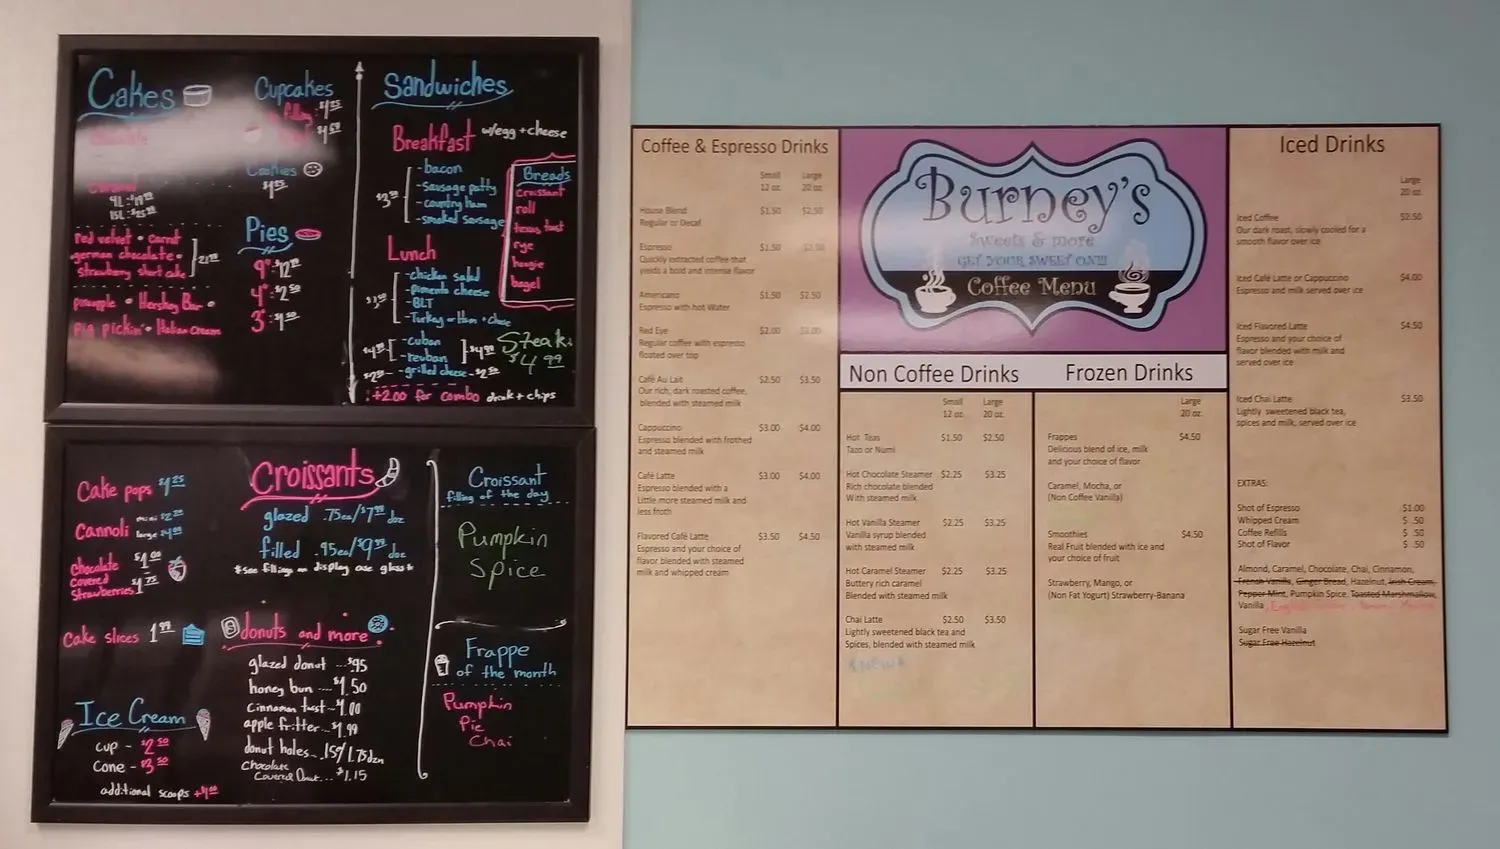 Cakes
Chocolate
Caramel
red velvet • carrot
german chocolate •
strawberry short cake
pineapple • Hershey Bar •
pig pickin' • Italian Cream
Cupcakes
filling
Cookies
Pies
9" : $12
4" : $2.50
3"
Sandwiches
Breakfast w/egg + cheese
- bacon
- sausage patty
- country ham
- smoked sausage
Breads
croissant
roll
texas toast
rye
hoagie
bagel
Lunch
- chicken salad
- pimento cheese
- BLT
- Turkey or Ham + chese
- cuban
- reuban
- grilled cheese -
Steak
$4.99
+2.00 for combo drink + chips
Cake pops $1.25
Cannoli
mini
large
Chocolate
Covered
Strawberries
$1.00
$1.75
Cake slices 1.99
Ice Cream
cup - $2.50
Cone - $3.50
additional scoops +$1.00
Croissants
glazed .75ea/$7.99 doz
filled .95ea/$9.99 doz
*see fillings on display case glass*
donuts and more
glazed donut ... $.95
honey bun .... $1.50
Cinnamon twist - 1.00
apple fritter .. $1.99
donut holes .. .15¢/1.75dzn
Chocolate
Covered Donut ... $1.15
Croissant
filling of the day
Pumpkin
Spice
Frappe
of the month
Pumpkin
Pie
Chai
Coffee & Espresso Drinks
Small Large
12 oz. 20 oz.
House Blend $1.50 $2.50
Regular or Decaf
Espresso $1.50
Quickly extracted coffee that
yields a bold and intense flavor
Americano $1.50 $2.50
Espresso with hot Water
Red Eye $2.00
Regular coffee with espresso
floated over top
Café Au Lait $2.50 $3.50
Our rich, dark roasted coffee,
blended with steamed milk
Cappuccino $3.00 $4.00
Espresso blended with frothed
and steamed milk
Café Latte $3.00 $4.00
Espresso blended with a
Little more steamed milk and
less froth
Flavored Café Latte $3.50 $4.50
Espresso and your choice of
flavor blended with steamed
milk and whipped cream
Burney's
Sweets & more
GET YOUR SWEET ON!!!
Coffee Menu
Non Coffee Drinks
Small Large
12 oz. 20 oz.
Hot Teas $1.50 $2.50
Tazo or Numi
Hot Chocolate Steamer $2.25 $3.25
Rich chocolate blended
With steamed milk
Hot Vanilla Steamer $2.25 $3.25
Vanilla syrup blended
with steamed milk
Hot Caramel Steamer $2.25 $3.25
Buttery rich caramel
Blended with steamed milk
Chai Latte $2.50 $3.50
Lightly sweetened black tea and
Spices, blended with steamed milk
Frozen Drinks
Large
20 oz.
Frappes $4.50
Delicious blend of ice, milk
and your choice of flavor
Caramel, Mocha, or
(Non Coffee Vanilla)
Smoothies $4.50
Real Fruit blended with ice and
your choice of fruit
Strawberry, Mango, or
(Non Fat Yogurt) Strawberry-Banana
Iced Drinks
Large
20 oz.
Iced Coffee $2.50
Our dark roast, slowly cooled for a
smooth flavor over ice
Iced Café Latte or Cappuccino $4.00
Espresso and milk served over ice
Iced Flavored Latte $4.50
Espresso and your choice of
flavor blended with milk and
served over ice
Iced Chai Latte $3.50
Lightly sweetened black tea,
spices and milk, served over ice
EXTRAS:
Shot of Espresso $1.00
Whipped Cream $ .50
Coffee Refills $ .50
Shot of Flavor $ .50
Almond, Caramel, Chocolate, Chai, Cinnamon,
French Vanilla, Ginger Bread, Hazelnut, Irish Cream,
Pepper Mint, Pumpkin Spice, Toasted Marshmallow,
Vanilla
Sugar Free Vanilla
Sugar Free Hazelnut